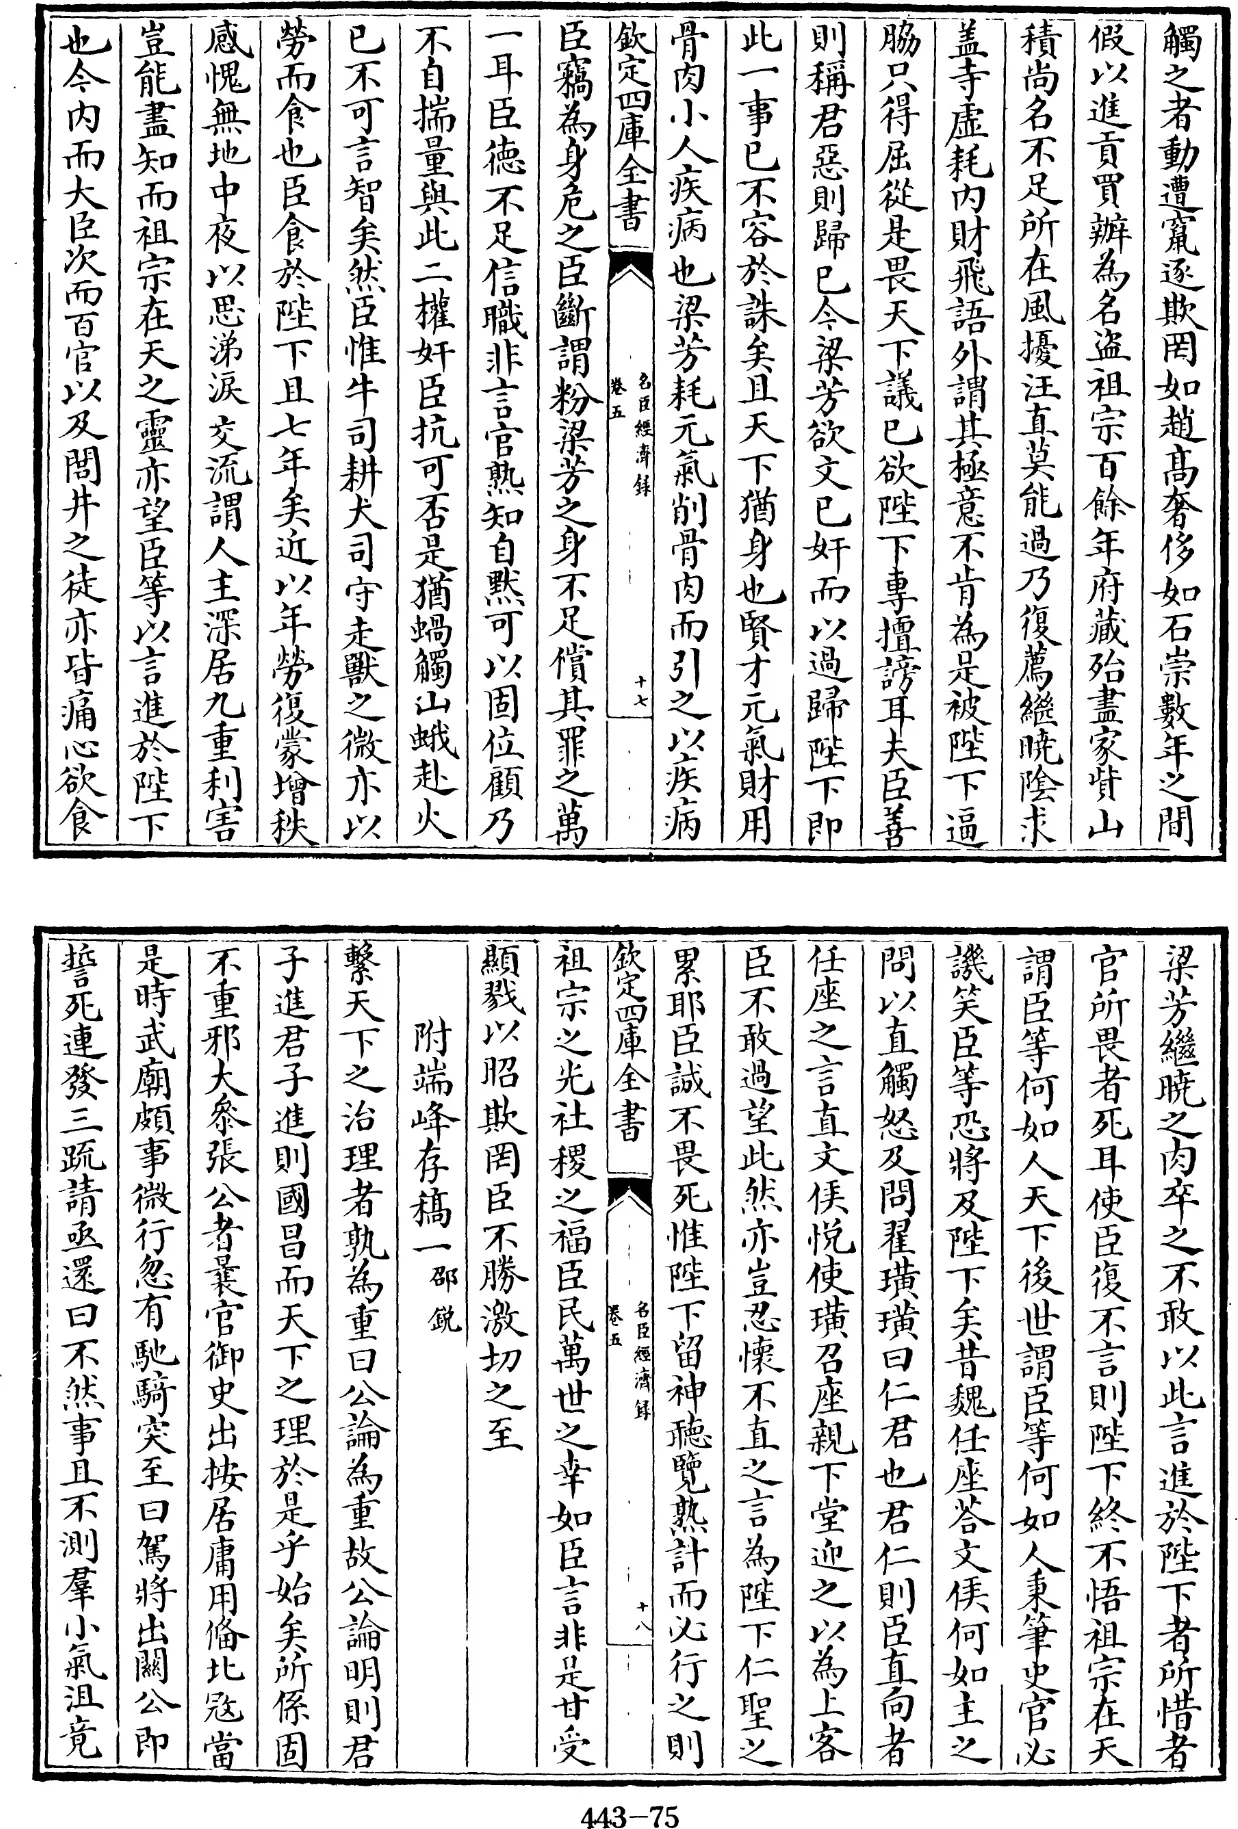 觸之者動遭竄逐欺罔如趙髙奢侈如石崇數年之間
假以進貢買辦為名盗祖宗百餘年府藏殆盡家貲山
積尚名不足所在風擾汪直莫能過乃復薦繼曉隂求
盖寺虚耗内財飛語外謂其極意不肯為是被陛下逼
脇只得屈從是畏天下議已欲陛下專擅謗耳夫臣善
則稱君惡則歸已今梁芳欲文已奸而以過歸陛下即
此一事已不容於誅矣且天下猶身也賢才元氣財用
骨肉小人疾病也梁芳耗元氣削骨肉而引之以疾病
欽定四庫全書
名臣經濟録
卷五
十七
臣竊為身危之臣斷謂粉梁芳之身不足償其罪之萬
一耳臣德不足信職非言官熟知自黙可以固位顧乃
不自揣量與此二權奸臣抗可否是猶蝸觸山蛾赴火
已不可言智矣然臣惟牛司耕犬司守走獸之微亦以
勞而食也臣食於陛下且七年矣近以年勞復蒙增秩
感愧無地中夜以思涕淚交流謂人主深居九重利害
豈能盡知而祖宗在天之靈亦望臣等以言進於陛下
也今内而大臣次而百官以及閭井之徒亦皆痛心欲食
梁芳繼曉之肉卒之不敢以此言進於陛下者所惜者
官所畏者死耳使臣復不言則陛下終不悟祖宗在天
謂臣等何如人天下後世謂臣等何如人秉筆史官必
譏笑臣等恐將及陛下矣昔魏任座荅文侯何如主之
問以直觸怒及問翟璜璜曰仁君也君仁則臣直向者
任座之言直文侯悦使璜召座親下堂迎之以為上客
臣不敢過望此然亦豈忍懷不直之言為陛下仁聖之
累耶臣誠不畏死惟陛下留神聽覽熟計而必行之則
欽定四庫全書
名臣經濟録
卷五
十八
祖宗之光社稷之福臣民萬世之幸如臣言非是甘受
顯戮以昭欺罔臣不勝激切之至
附端峰存稿一邵鋭
繫天下之治理者孰為重曰公論為重故公論明則君
子進君子進則國昌而天下之理於是乎始矣所係固
不重邪大叅張公者曩官御史出按居庸用俻北寇當
是時武廟頗事微行忽有馳騎突至曰駕將出關公即
誓死連發三疏請亟還曰不然事且不測羣小氣沮竟
443-75